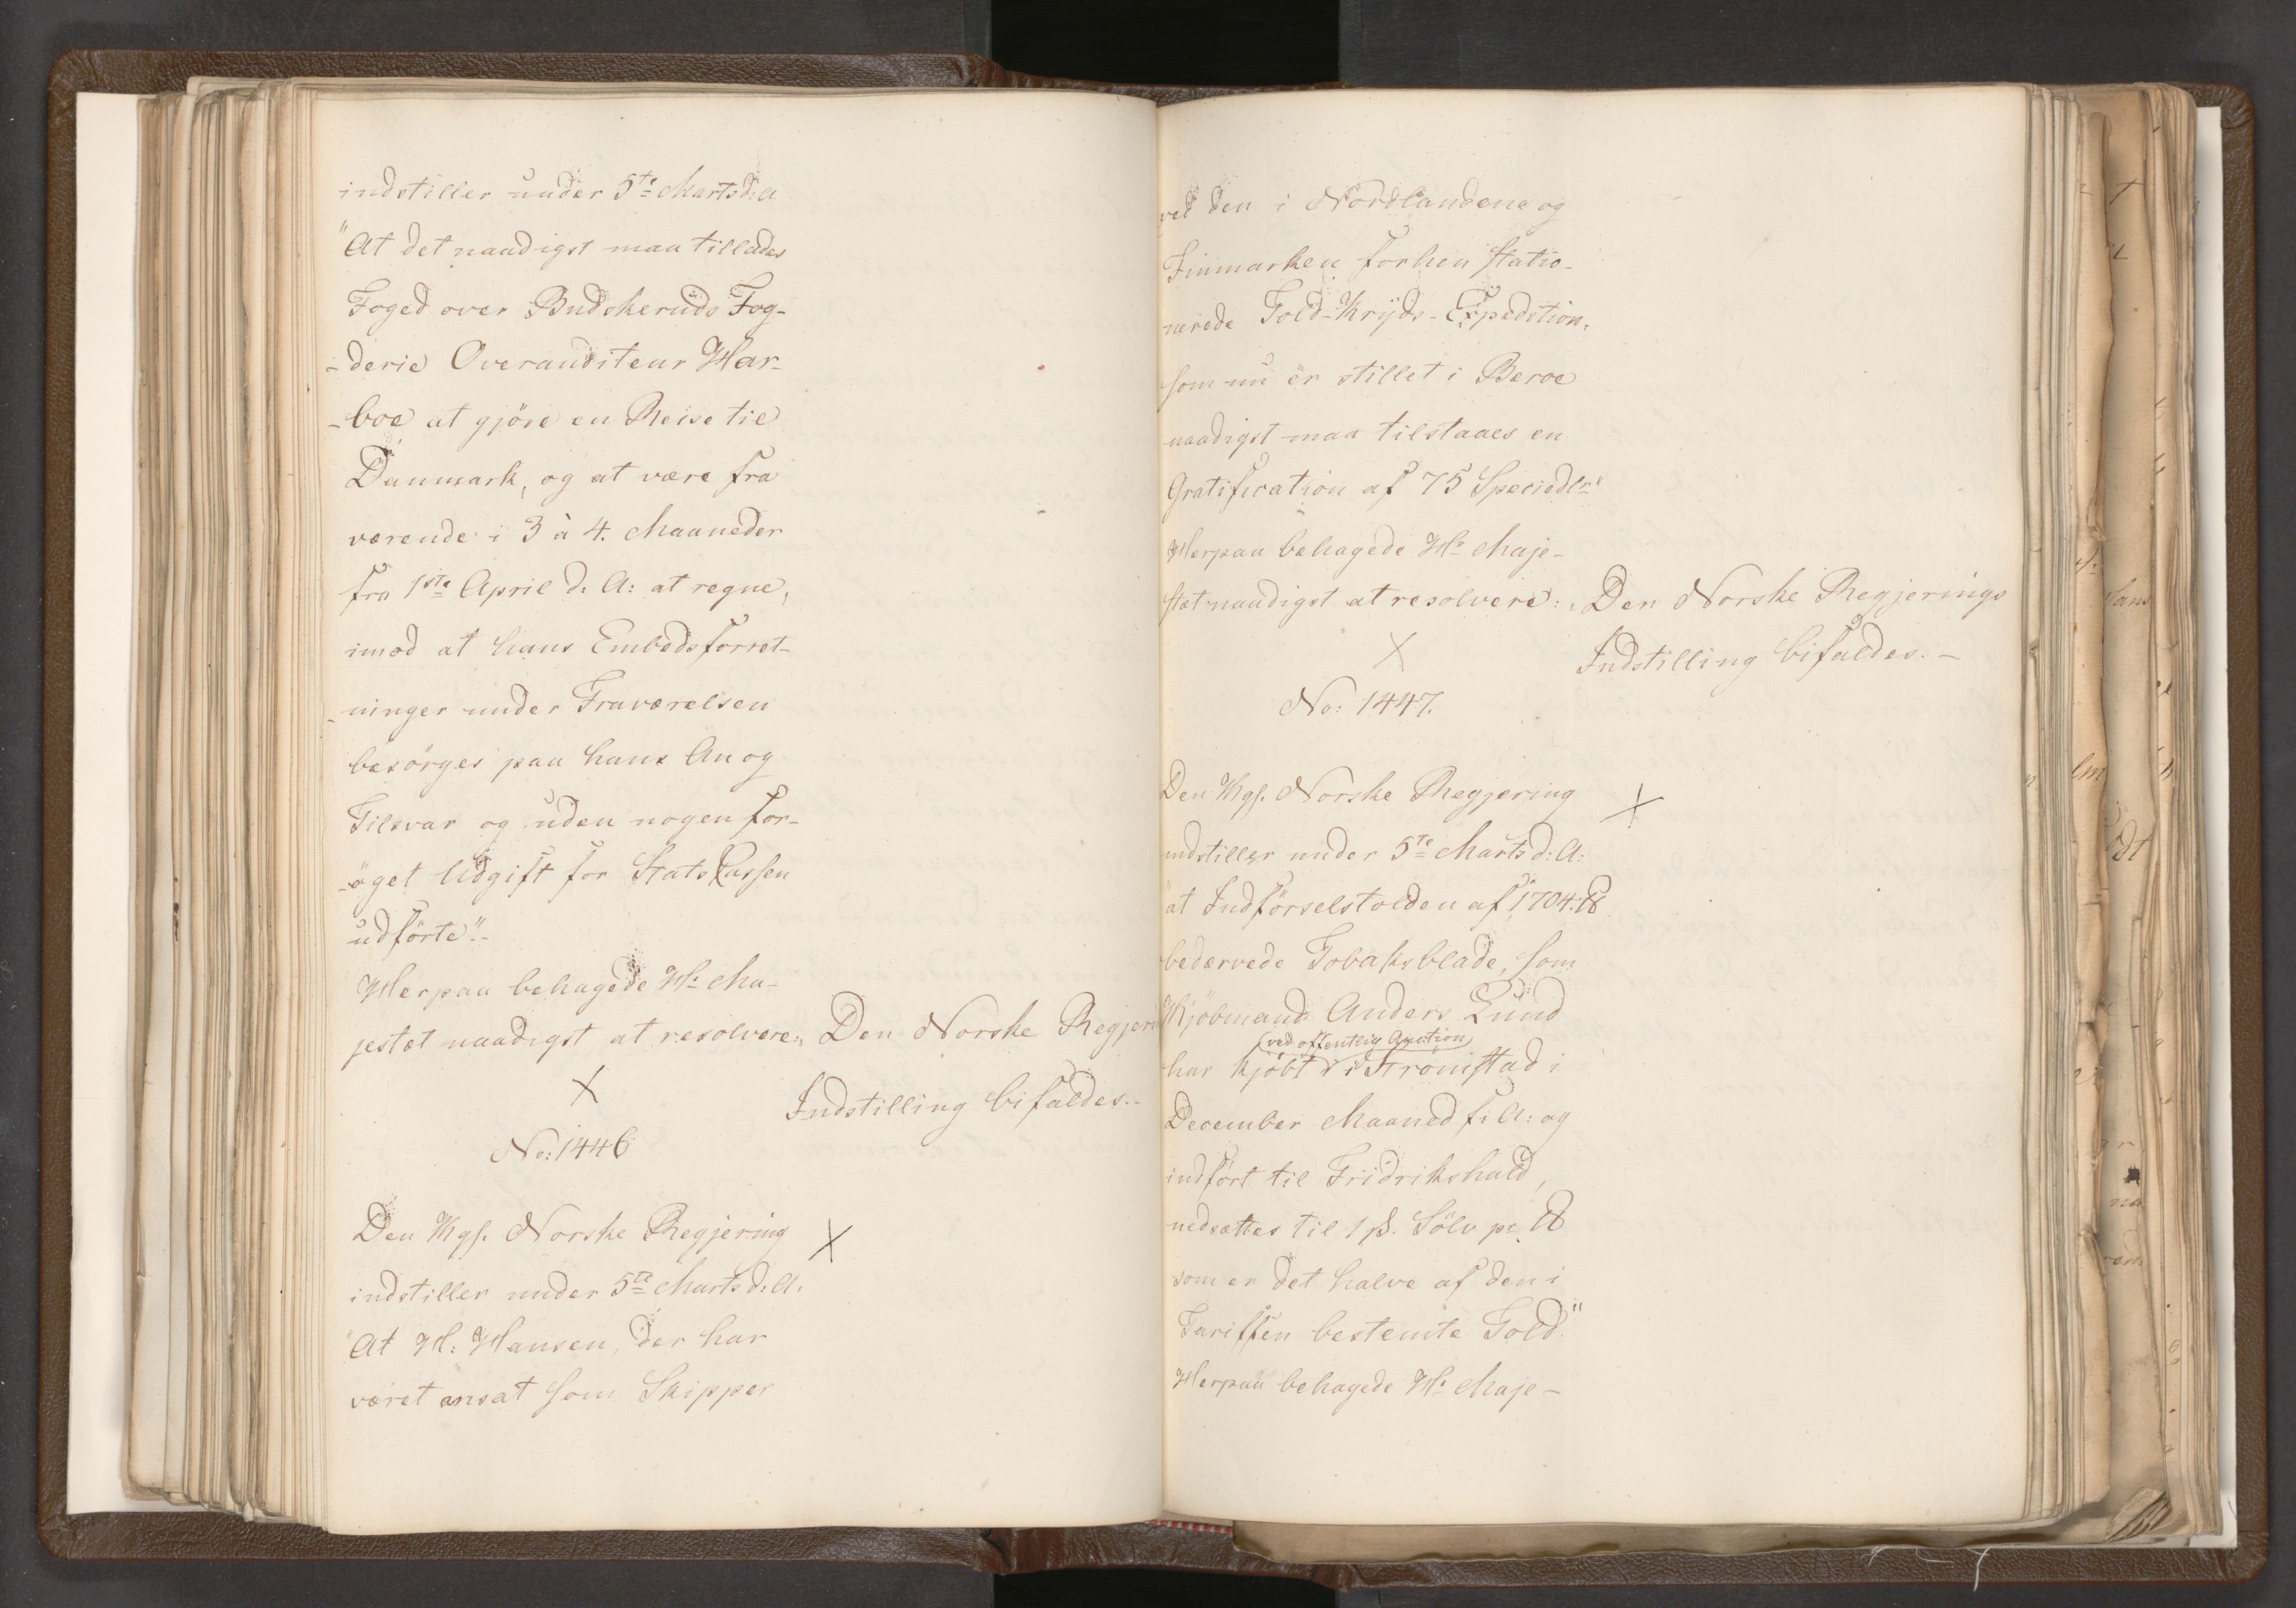 indstiller under 5te Marts d: A
"At det naadigst maa tillades
Foged over Budskeruds Fog-
-derie Overauditeur Har-
-boe at gjöre en Reise til
Danmark, og at være fra
værende i 3 à 4. Maaneder
fra 1ste April d: A: at regne,
imod at hans Embedsforret-
-ninger under Fraværelsen
besörges paa hans An og
Tilsvar og uden nogen for-
-öget Udgift for StatsCassen
udförte".-
Herpaa behagede Hs Ma-
jestæt naadigst at resolvere: Den Norske Regjeri
Indstilling bifaldes.-
No: 1446
Den Kgs. Norske Regjering
indstiller under 5te Marts d: A.
"At H: Hansen, der har
været ansat som Skipper
ved den i Nordlandene og
Finmarken forhen statio-
nerede Told-Kryds-Expedition,
som nu er stillet i Beroe
naadigst maa tilstaaes en
Gratification af 75 Speciedlr"
Herpaa behagede Hs Maje-
stæt naadigst at resolvere: Den Norske Regjerings
Indstilling bifaldes.-
No: 1447.
Den Kgs. Norske Regjering
indstiller under 5te Marts d: A:
"at Indförselstolden af 1704 ℔
bedærvede Tobaksblade, som
Kjöbmand Anders Lund
(ved offentlig Auction)
har kjöbt i Strömstad i
December Maaned f: A: og
indfört til Fridrikshald,
nedsættes til 1 ß. Sölv pr. ℔
som er det halve af den i
Tariffen bestemte Told."
Herpaa behagede Hs Maje-